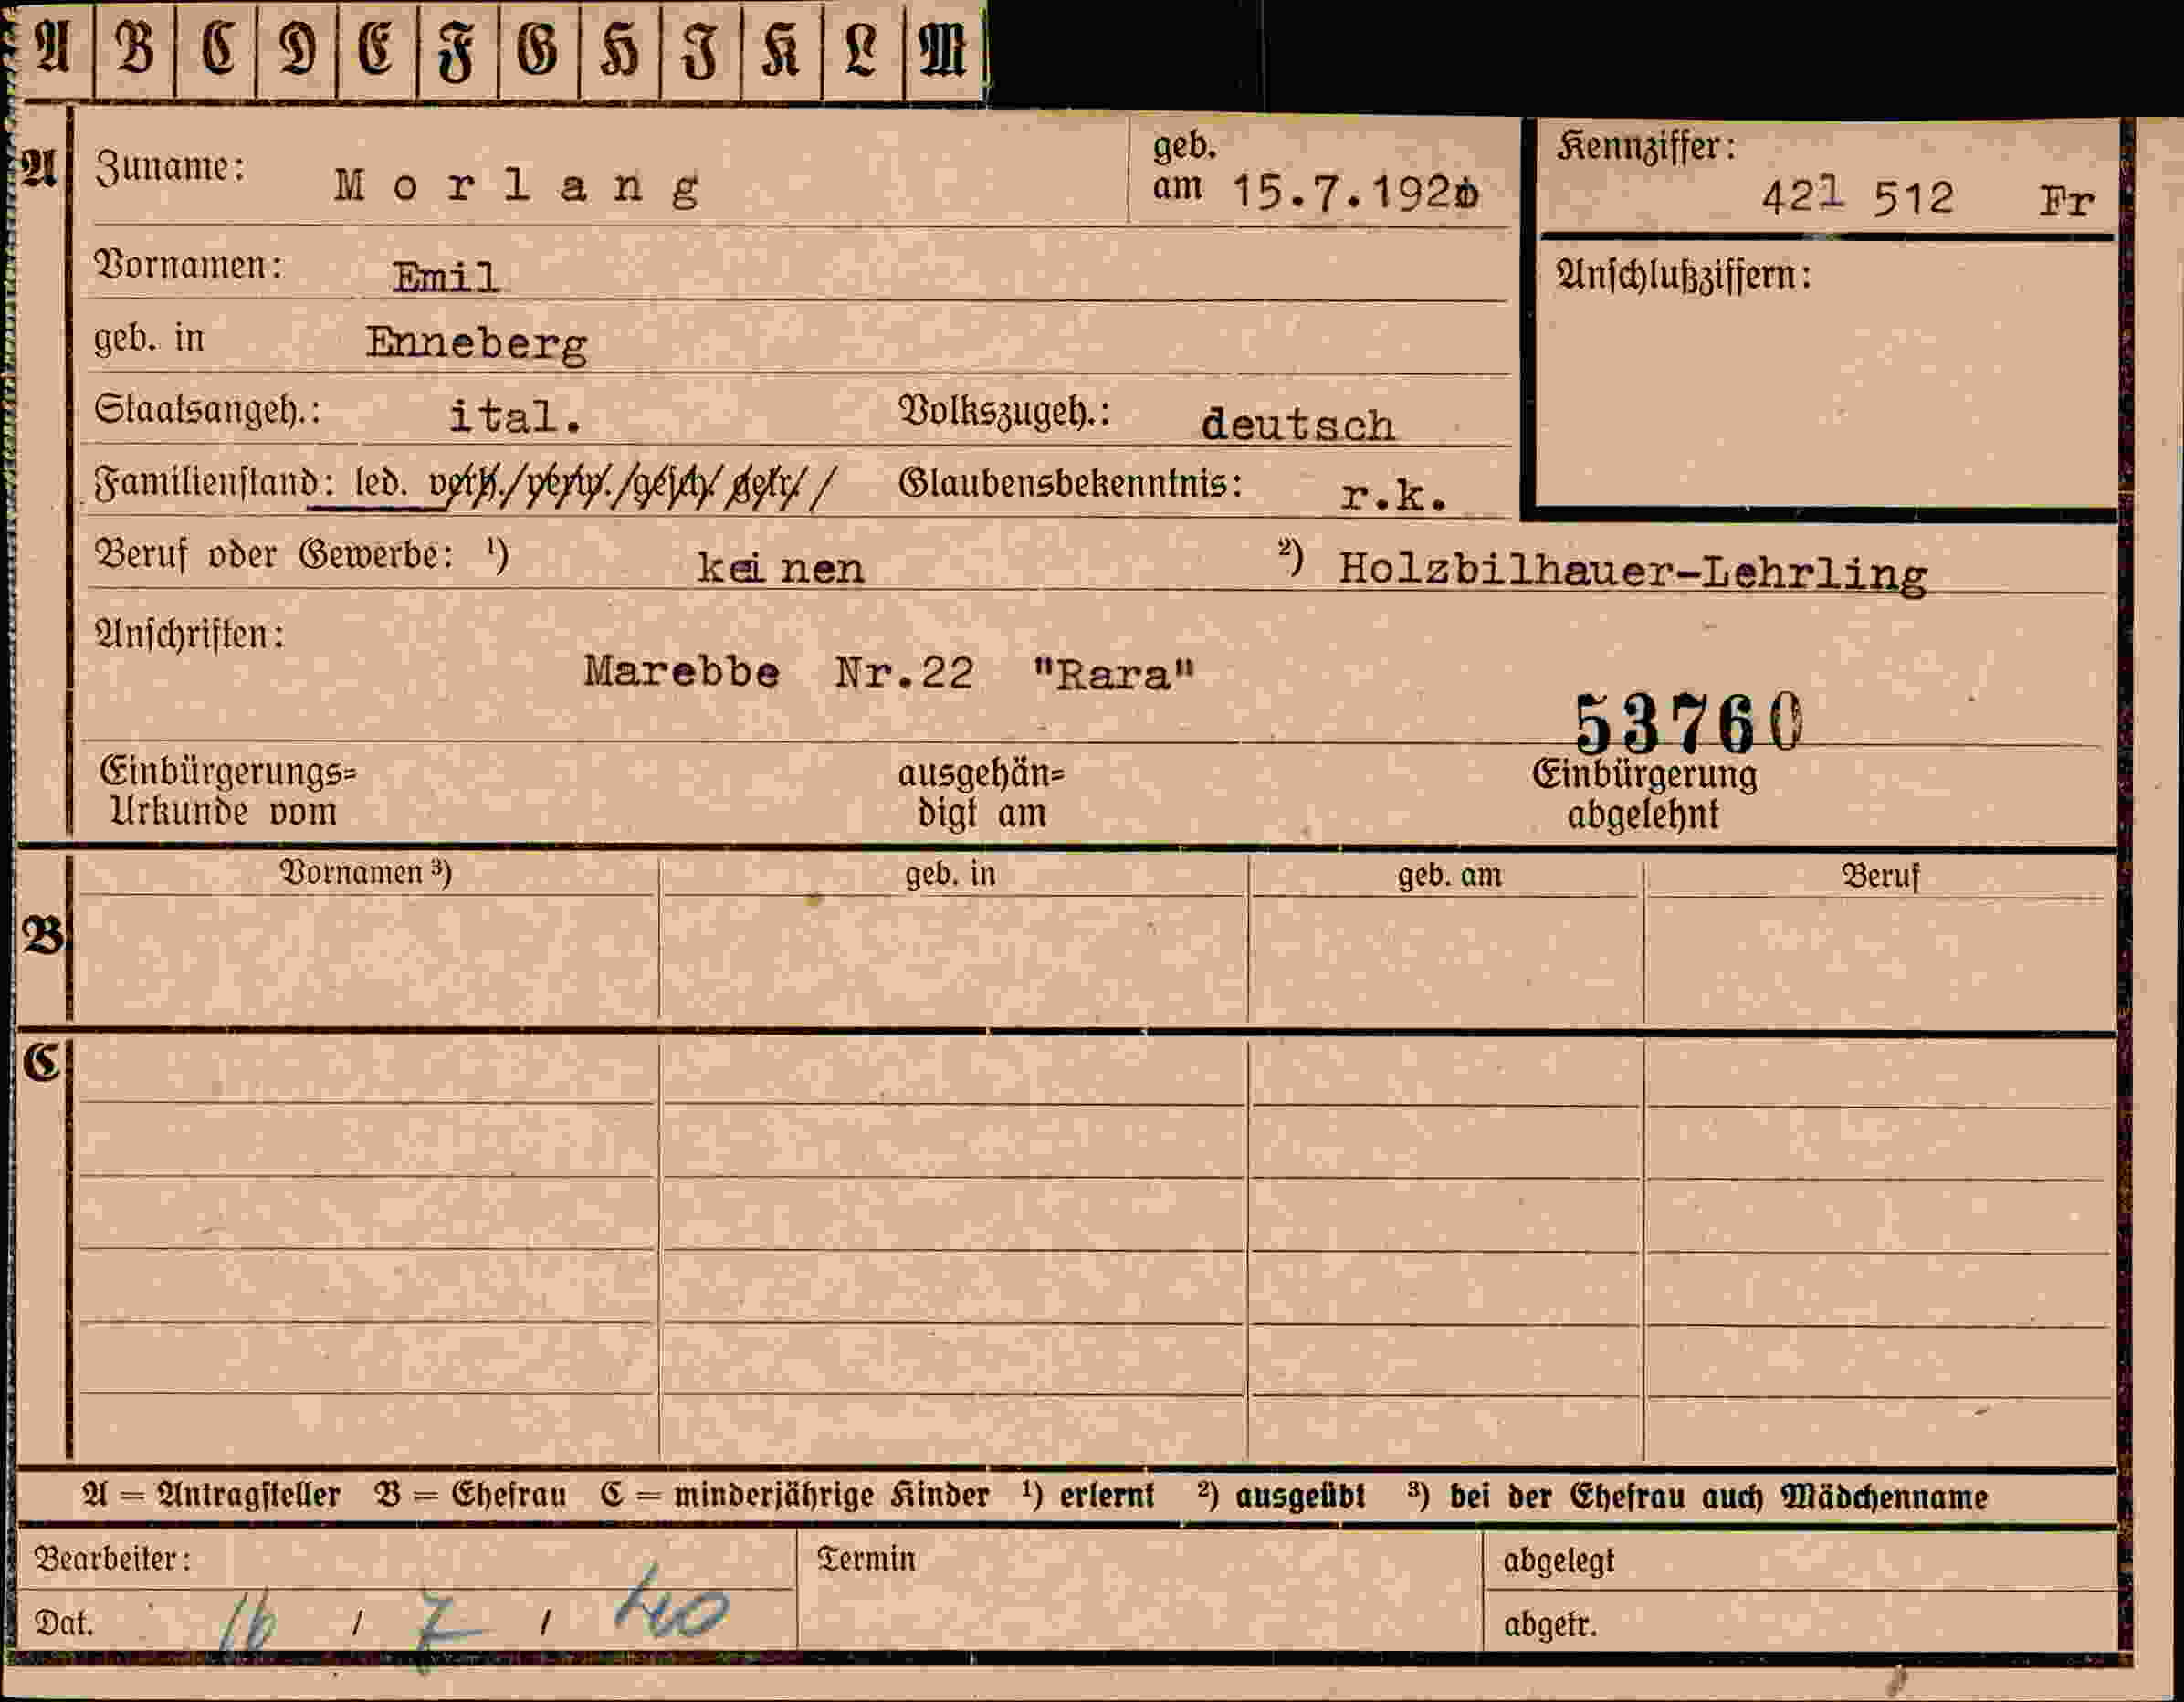 A B C D E F G H I K L M
A Zuname: Morlang geb. am 15.7.1920 Kennziffer: 421 512 Fr
Vornamen: Emil Anschlußziffern:
geb. in Enneberg
Staatsangeh.: ital. Volkszugeh.: deutsch
Familienstand: led. verh./verw./gesch./getr./ Glaubensbekenntnis: r.k.
Beruf oder Gewerbe: ¹) keinen ²) Holzbilhauer-Lehrling
Anschriften:
Marebbe Nr.22 "Rara"
53760
Einbürgerungs= ausgehän= Einbürgerung
Urkunde vom digt am abgelehnt
Vornamen ³) geb. in geb. am Beruf
B
C
A = Antragsteller B = Ehefrau C = minderjährige Kinder ¹) erlernt ²) ausgeübt ³) bei der Ehefrau auch Mädchenname
Bearbeiter: Termin abgelegt
Dat. 16 / 7 / 40 abgetr.